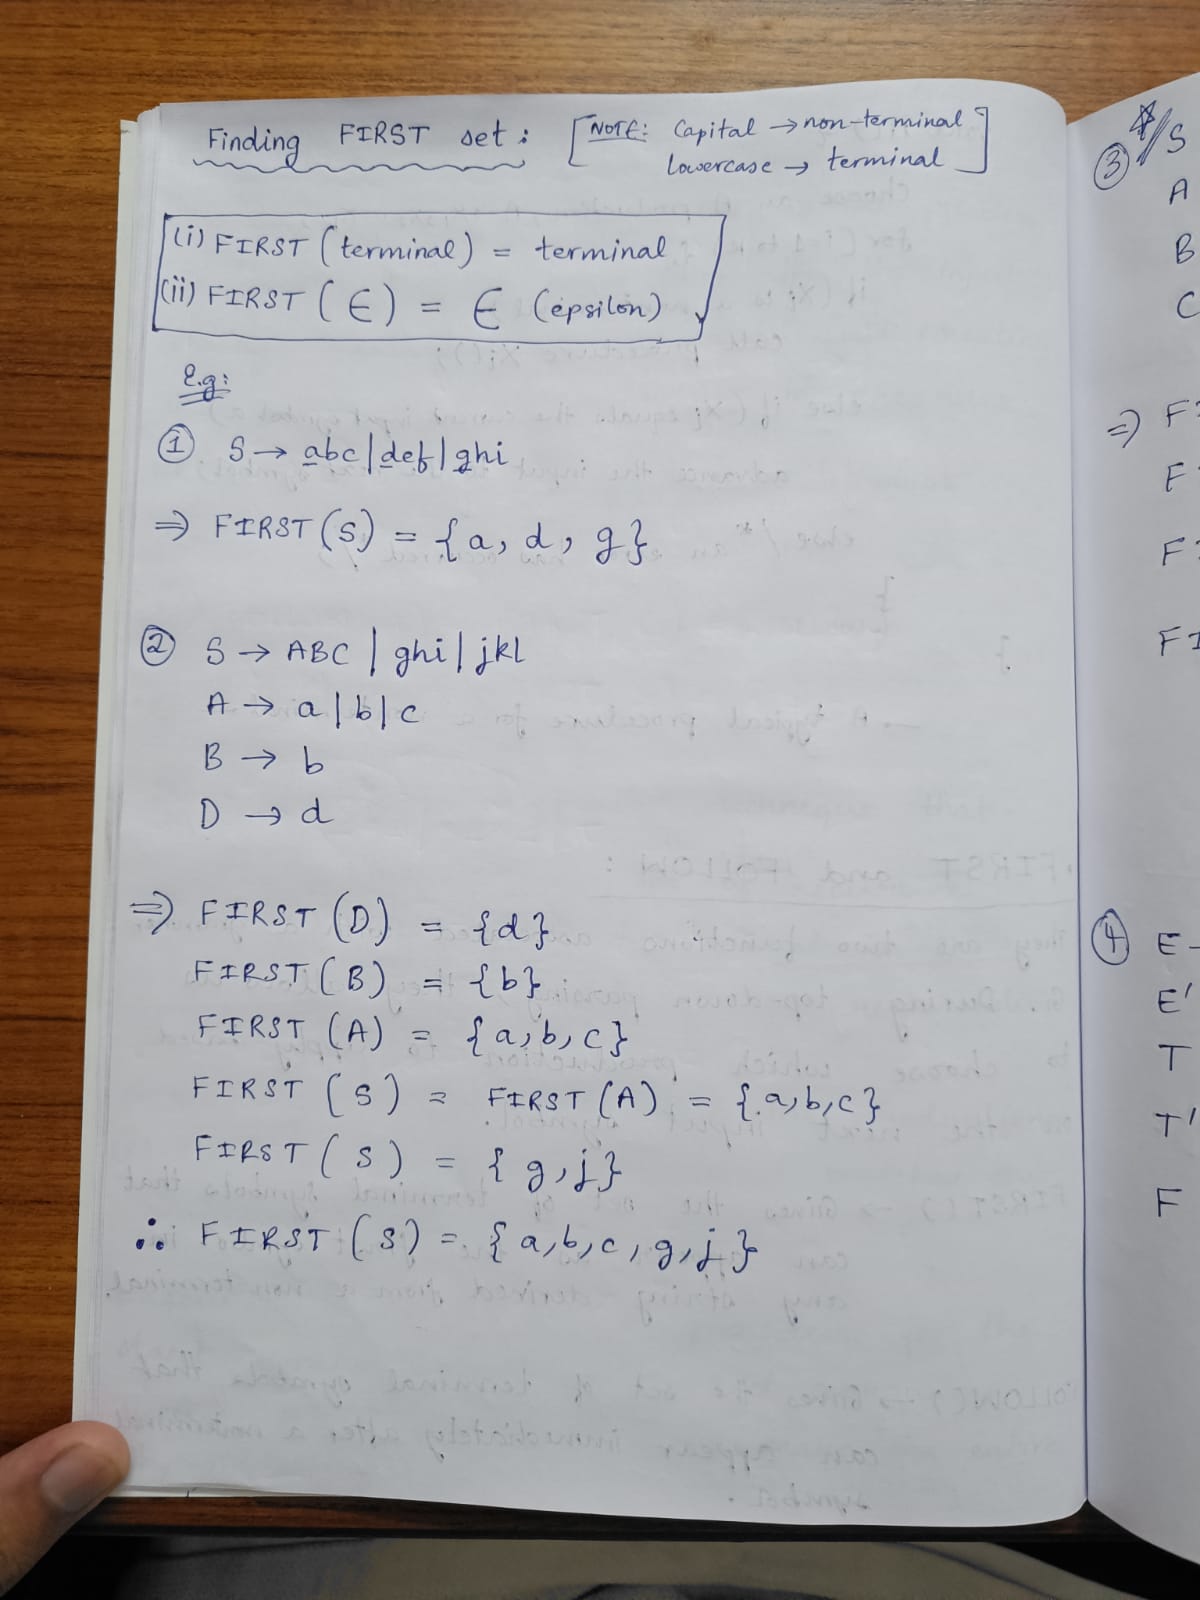 Finding FIRST set: [NOTE: Capital → non-terminal
Lowercase → terminal]
(i) FIRST (terminal) = terminal
(ii) FIRST (∈) = ∈ (epsilon)
E.g:
① S → abc | def | ghi
⇒ FIRST (S) = {a, d, g}
② S → ABC | ghi | jkl
A → a | b | c
B → b
D → d
⇒ FIRST (D) = {d}
FIRST (B) = {b}
FIRST (A) = {a, b, c}
FIRST (S) = FIRST (A) = {a, b, c}
FIRST (S) = {g, j}
∴ FIRST (S) = {a, b, c, g, j}
③ S
A
B
C
⇒ F
F
F
FI
④ E
E'
T
T'
F